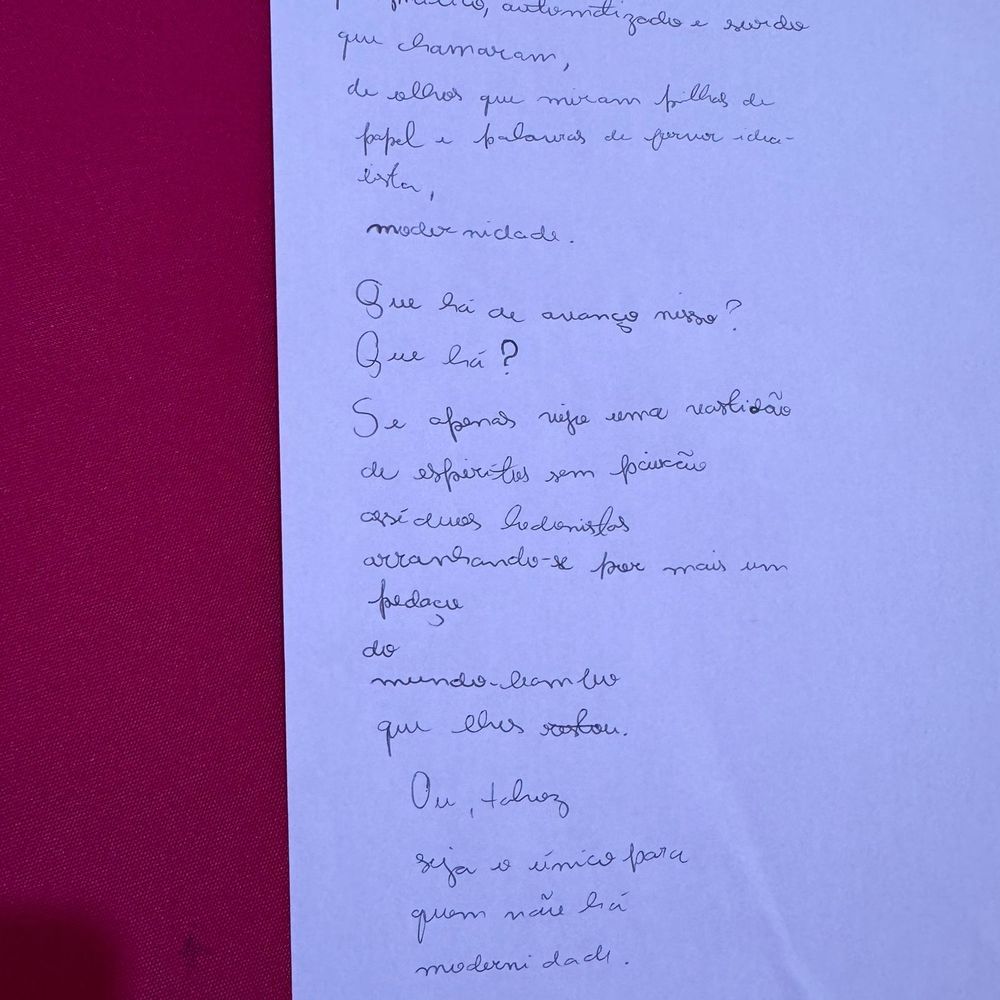 automatizado e surdo
que chamaram,
de olhos que miram pilhas de
papel e palavras de fervor idea-
ista,
modernidade.
Que há de avanço nisso?
Que há?
Se apenas vejo uma vastidão
de espíritos sem paixão
assíduos hedonistas
arranhando-se por mais um
pedaço
do
mundo-
que lhes restou.
Ou, talvez
seja o único para
quem não há
modernidade.